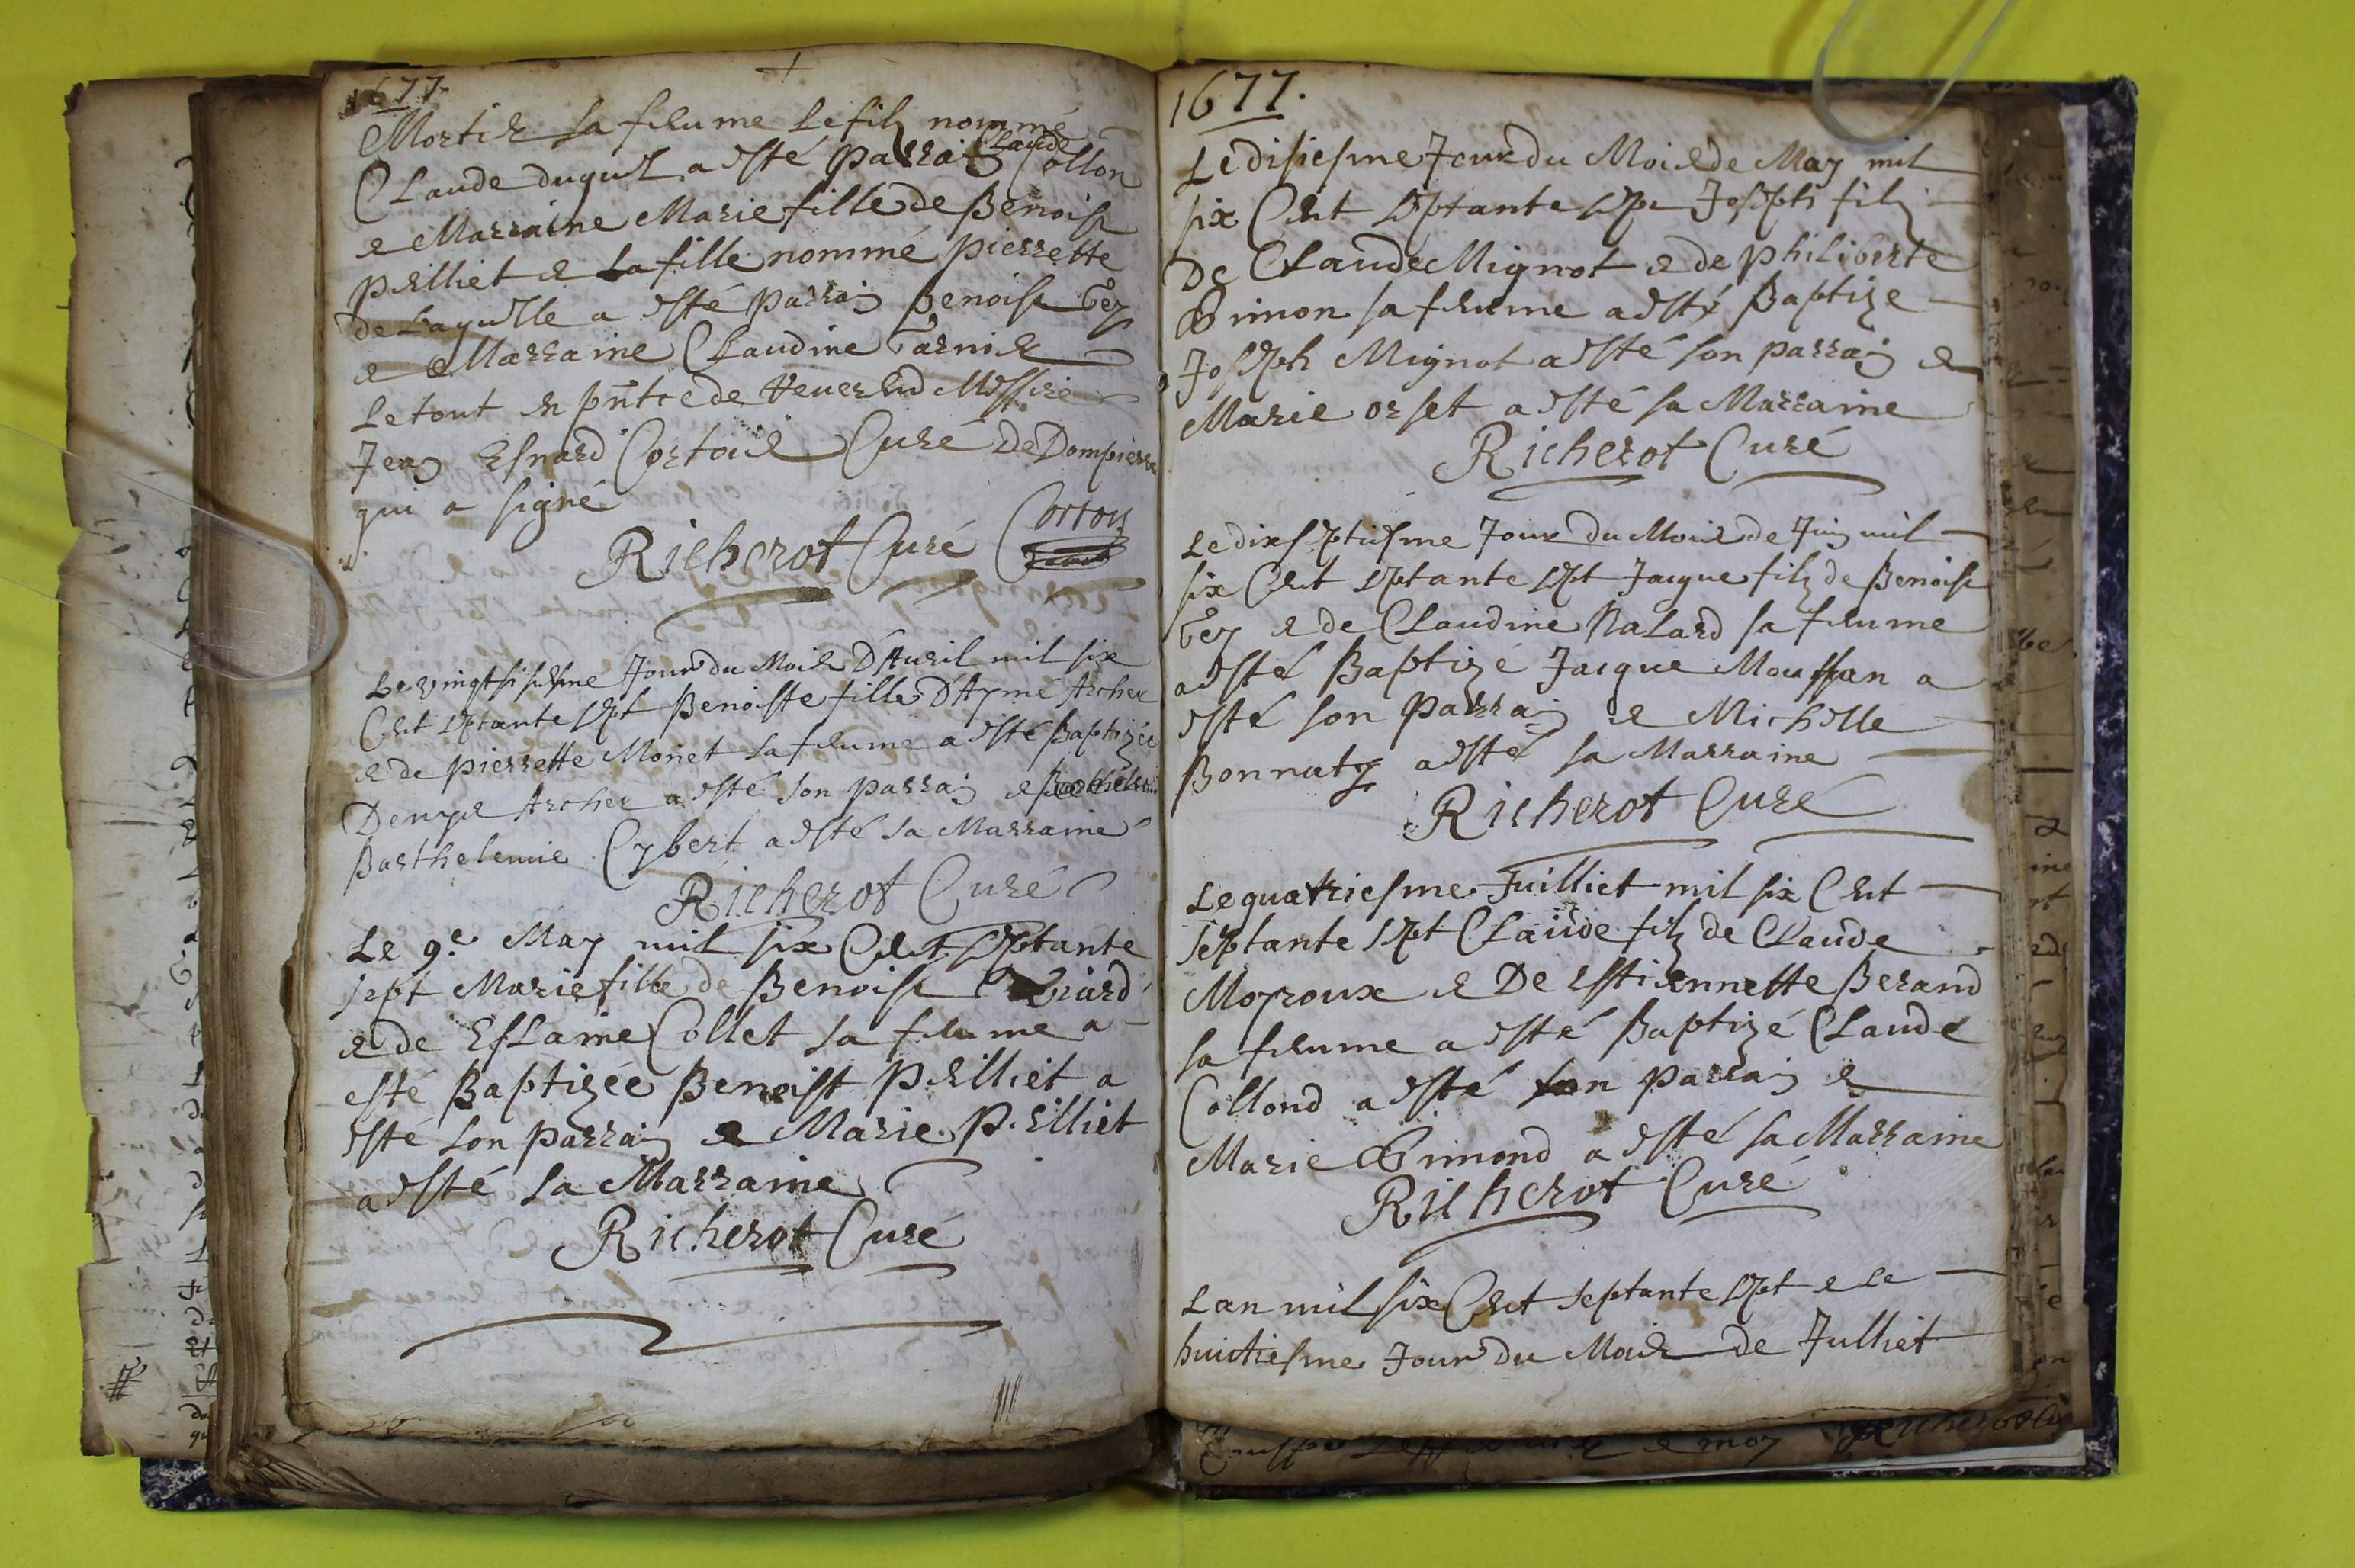 1677.
Mortier sa femme le filz nommé
Claude duquel a esté parrain Claude Collon
& Marraine Marie fille de Benoist
Pelliet & la fille nommé pierrette
de laquelle a esté parrain Benoist Gey
& Marraine Claudine Garnier
Le tout en pñtce de Reverend Messire
Jean Esnard Cortois Curé de Dompierre
qui a signé
Richerot Curé Cortois
Le vingt sixiesme Jour du Mois D'Auril mil six
Cent septante sept Benoiste fille D'Aymé Archer
& de pierrette Monet sa femme a esté Baptizée
Denys Archer a esté son parrain &
Barthelemie Cybert a esté sa Marraine
Richerot Curé
Le 9e. May mil six Cent septante
sept Marie fille de Benoist
& de Eslaine Collet sa femme a
esté Baptizée Benoist Pelliet a
esté son parrain & Marie Pelliet
a esté sa Marraine
Richerot Curé
1677.
Le disiesme Jour du Mois de May mil
six Cent septante sept Joseph filz
de Claude Mignot & de philiberte
Gimon sa femme a esté Baptize
Joseph Mignot a esté son parrain &
Marie orset a esté sa Marraine
Richerot Curé
Le dix septiesme Jour du Mois de Juin mil
six Cent septante sept Jacque filz de Benoist
Gey & de Claudine Nalard sa femme
a esté Baptizé Jacque Moussan a
esté son parrain & Michelle
Bonnaty a esté sa Marraine
Richerot Curé
Le quatriesme Juilliet mil six Cent
septante sept Claude filz de Claude
Moyroux & De Estiennette Berand
sa femme a esté Baptizé Claude
Collond a esté son parrain &
Marie Gimond a esté sa Marraine
Richerot Curé
Lan mil six Cent septante sept & le
huictiesme Jour du Mois de Julliet